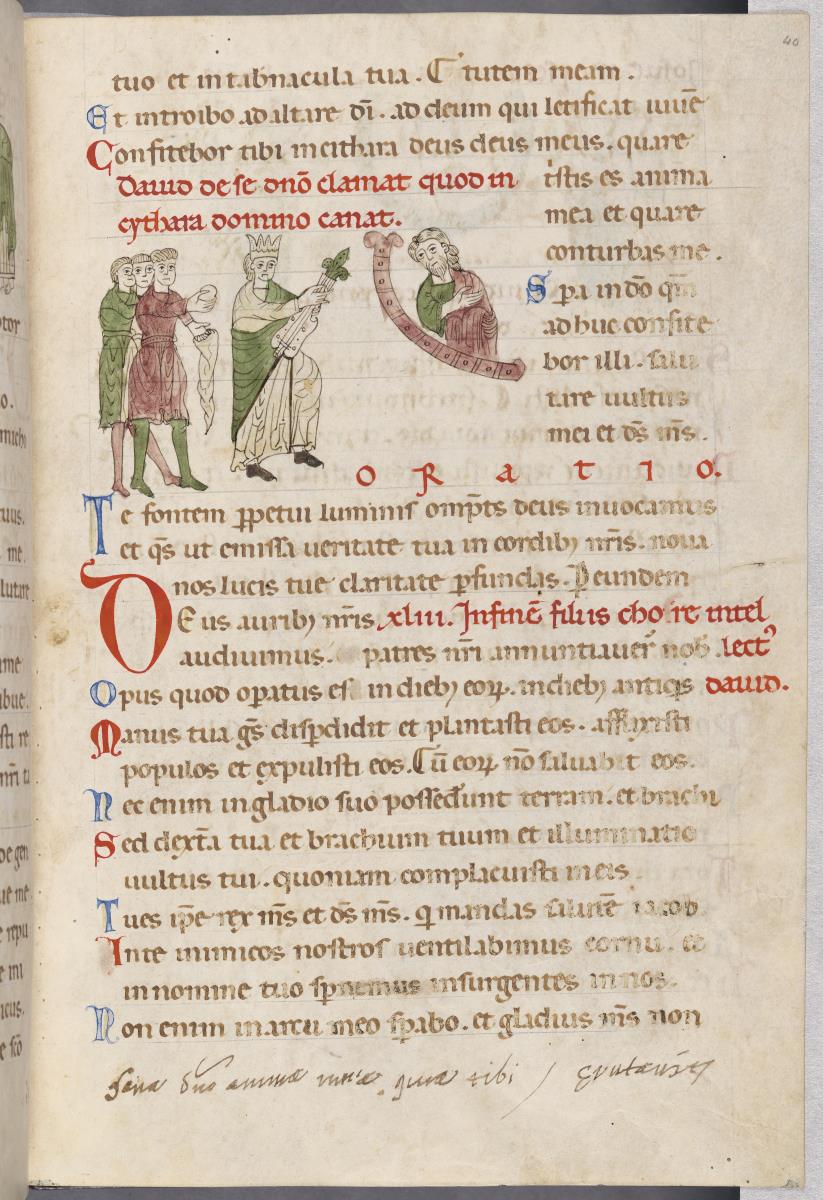 40
tuo et in tabnacula tua. C tutem meam.
Et introibo ad altare dī. ad deum qui letificat iuuē
Confitebor tibi in cithara deus deus meus. quare
Dauid de se dnō clamat quod in
cythara domino canat.
tristis es anima
mea et quare
conturbas me.
Spa in dō qm̄
adhuc confite
bor illi. salu
tare uultus
mei et ds̄ ms̄.
ORATIO.
Te fontem ꝑpetui luminis omp̄ts deus inuocamus
et qs̄ ut emissa ueritate tua in cordibꝫ nr̄is. noua
nos lucis tue claritate ꝑfundas. P eundem
DEus auribꝫ nr̄is xliii. In finē filiis chore intel
audiuimus. patres nr̄i annuntiauer̄ nob. lectꝰ
Opus quod oꝑatus es in diebꝫ eoꝝ. in diebꝫ antiqs dauid.
Manus tua gs̄ disꝑdidit et plantasti eos. afflixisti
populos et expulisti eos. Cū eoꝝ nō saluabit eos.
Nec enim in gladio suo possedunt terram. et brachi
Sed dext̄a tua et brachium tuum et illuminatio
uultus tui. quoniam complacuisti in eis
Tu es ip̄e rex ms̄ et ds̄ ms̄. qi mandas salutē iacob
Inte inimicos nostros uentilabimus cornu. et
in nomine tuo sꝑnemus insurgentes in nos.
Non enim in arcu meo sꝑabo. et gladius ms̄ non
Sana dn̄e animā meā quia tibi